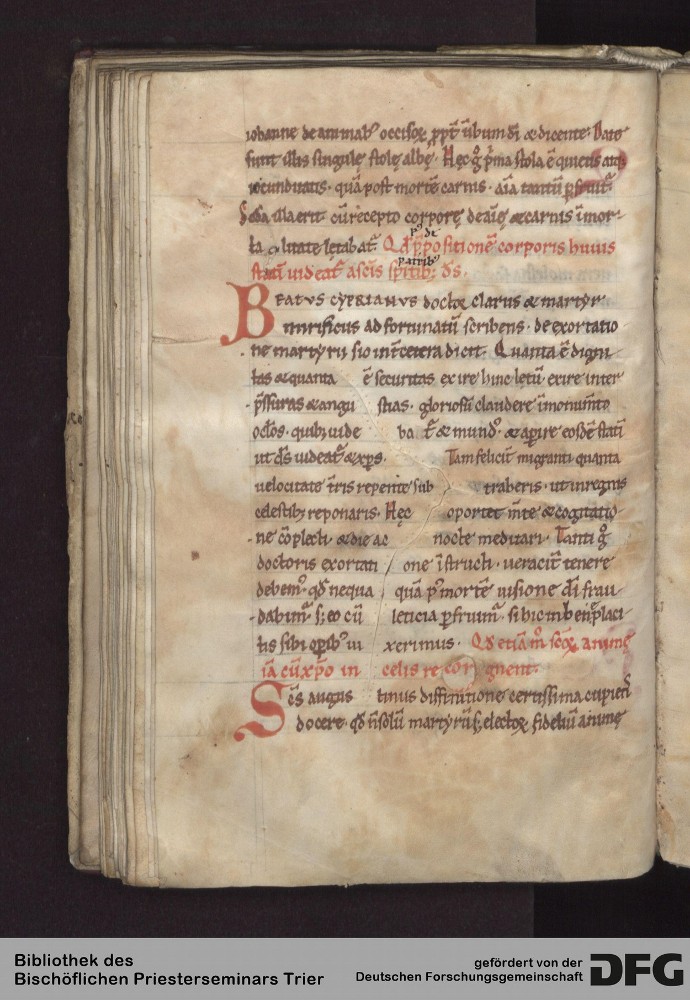 iohanne de animab' occisoꝝ ꝓpt̄ ūbum dī & dicente· Datę
sunt illis singulę stolę albę· Hęc g̊ p̄ma stola ē quietis atq;
iocunditatis· quā post mortē carnis· aīa tantū ꝑfruit̄
Scda illa erit cū recepto corporę de aīę & carnis īmor-
ta litate lętabat̄ Qd p̄positionē corporis huius
p' de
statī uideat̄ a scīs sp̄itib; d̄s.
patrib'
BEATVS CYPRIANVS doctoꝝ clarus & martyr
mirificus ad fortunatū scribens· de exortatio
ne martyrii sic int̄ cetera dicit· Quanta ē digni
tas & quanta ē securitas exire hinc lętū· exire inter
p̄ssuras & angu stias· gloriosū claudere ī momto
oc̄los· quib; uide bat̄ & mund'· & aꝑire eosdē statī
ut d̄s uideat̄ & xp̄s. Tam felicit̄ migranti quanta
uelocitate t̄ris repente sub traheris· ut in regnis
celestib; reponaris· Hęc oportet m̄te & cogitatio
ne cōplecti· & die ac nocte meditari· Tanti g̊
doctoris exortati one īstructi· ueracit̄ tenere
debem'· qd nequa quā p' mortē uisione dī frau
dabim̄ s; eo cū leticia ꝑfruim̄· si hic in bene placi
tis sibi oꝑib' ui xerimus· Qd etiā m̊ scōꝝ animę
iā cū xp̄o in celis re gnent·
Scs̄ augus tinus diffinitione certissima cupiens
docere· qd n̄ solū martyrū s; electoꝝ fideliū animę
Bibliothek des
Bischöflichen Priesterseminars Trier
gefördert von der
Deutschen Forschungsgemeinschaft
DFG